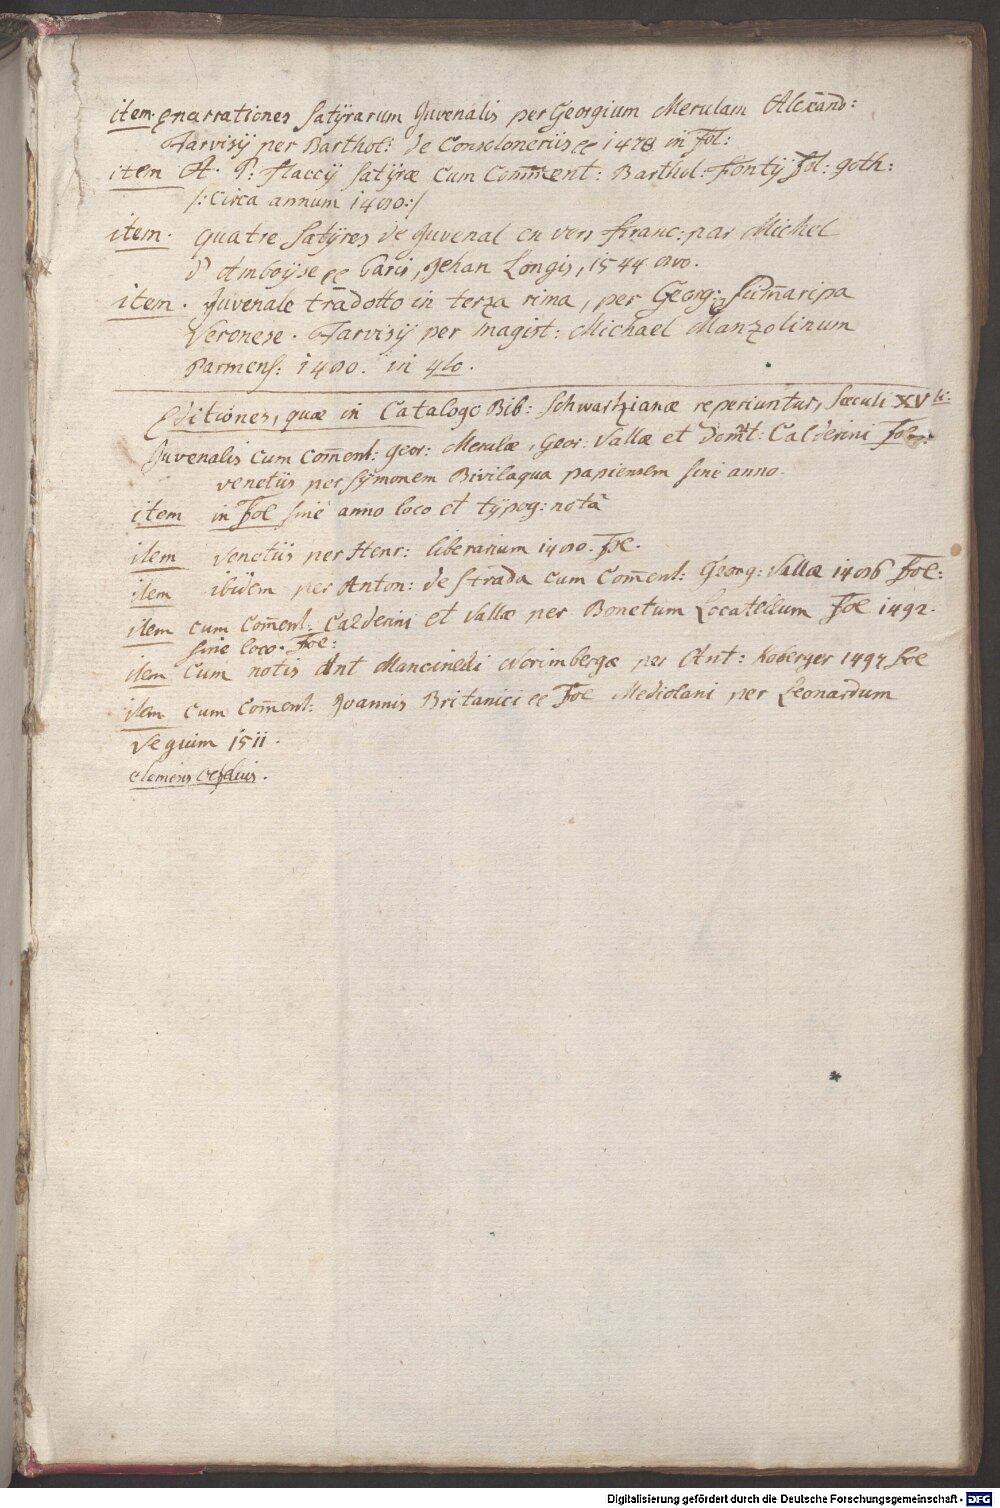 item. enarrationes Satÿrarum Juvenalis per Georgium Merulam Alexand:
Tarvisÿ per Barthol: de Consoloneriis &c 1478 in Fol:
item A. P. Flaccÿ Satÿræ cum Com̄ent: Barthol: Fontÿ Fol: goth:
/: Circa annum 1480 :/
item. quatre Satÿres de Juvenal en vers Franc: par Michel
d'Amboÿse &c Paris, Jehan Longis, 1544 8vo.
item. Juvenale tradotto in terza rima, per Georg: Sum̄aripa
Veronese. Tarvisÿ per magist: Michael Manzolinum
Parmens: 1480. in 4to.
Editiones, quæ in Catalogo Bib: Schwartzianæ reperiuntur, Sæculi XVti:
Juvenalis cum Com̄ent: geor: Merulæ, Geor: Vallæ et Domit: Calderini Fol:
venetiis per Sÿmonem Bivilaqua papiensem sine anno.
item in Fol sine anno loco et tÿpog: notâ
item venetiis per Henr: liberarium 1480. Fol.
item ibidem per Anton: de Strada cum Com̄ent: Georg: Vallæ 1486 Fol:
item cum Com̄ent: Calderini et Vallæ per Bonetum Locatellum Fol 1492.
sine loco. Fol:
item cum notis Ant Mancinelli Norimbergæ per Ant: Koberger 1497 Fol
item cum Com̄ent: Joannis Britanici &c Fol Mediolani per Leonardum
Veguim 1511.
Digitalisierung gefördert durch die Deutsche Forschungsgemeinschaft - DFG